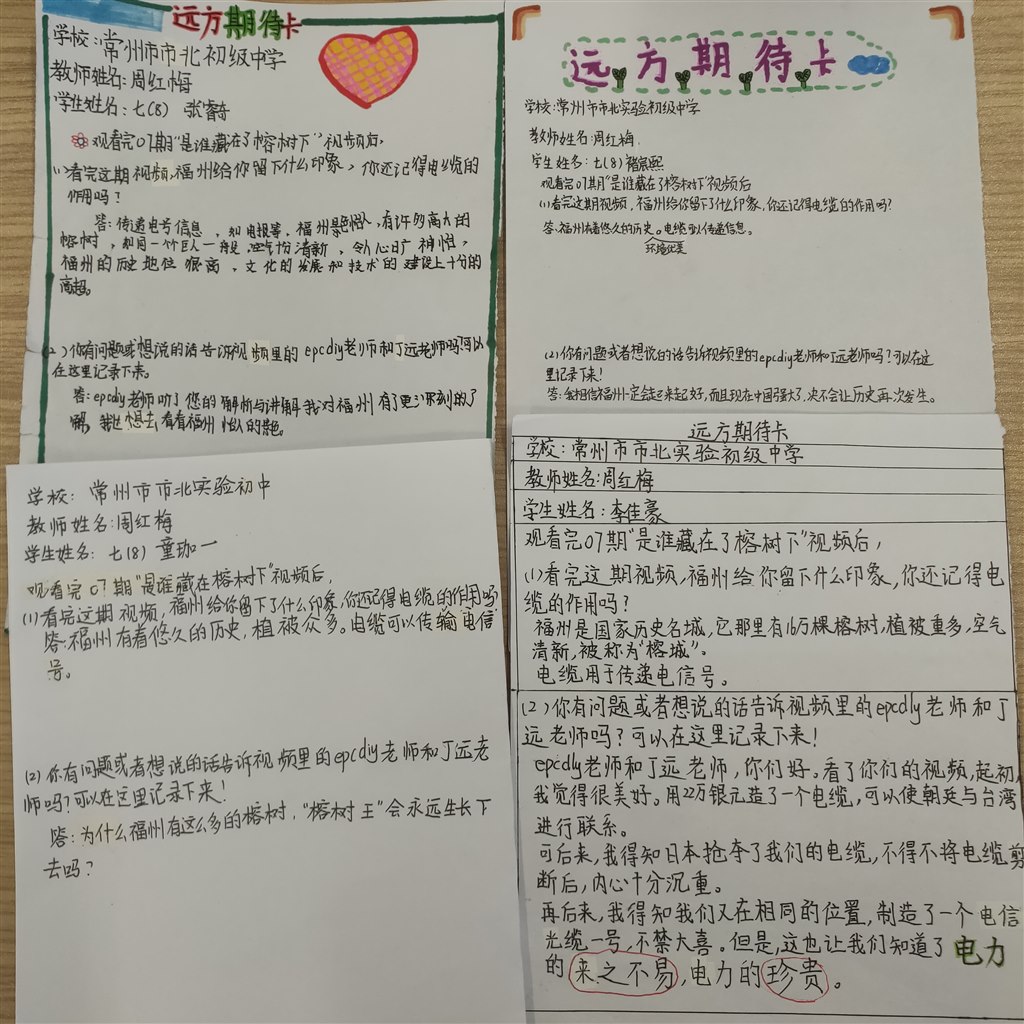 远方期待卡
学校:常州市市北初级中学
教师姓名:周红梅
学生姓名:七(8) 张睿奇
观看完07期"是谁藏在了榕树下"视频后,
(1)看完这期视频,福州给你留下什么印象,你还记得电缆的
作用吗?
答:传递电号信息,如电报等,福州景色怡人,有许多高大的
榕树,如同一个巨人一般,空气份清新,令人心旷神怡,
福州的历史地位很高,文化的发展和技术的建设上十分的
高超。
(2)你有问题或想说的话告诉视频里的epcdiy老师和丁远老师吗?可以
在这里记录下来。
答:epcdiy老师听了您的解析与讲解我对福州有了更深刻的了
解,我也想去看看福州怡人的景色。
远方期待卡
学校:常州市市北实验初级中学
教师姓名:周红梅
学生姓名:七(8)
观看完07期"是谁藏在了榕树下"视频后
(1)看完这期视频,福州给你留下了什么印象,你还记得电缆的作用吗?
答:福州有着悠久的历史。电缆可以传递信息。
环境优美
(2)你有问题或者想说的话告诉视频里的epcdiy老师和丁远老师吗?可以在这
里记录下来!
答:我相信福州一定会越来越好,而且现在中国强大了,决不会让历史再次发生。
学校:常州市市北实验初中
教师姓名:周红梅
学生姓名:七(8)童珈一
观看完07期"是谁藏在榕树下"视频后,
(1)看完这期视频,福州给你留下了什么印象,你还记得电缆的作用吗
答:福州有着悠久的历史,植被众多。电缆可以传输电信
号。
(2)你有问题或者想说的话告诉视频里的epcdiy老师和丁远老
师吗?可以在这里记录下来!
答:为什么福州有这么多的榕树,"榕树王"会永远生长下
去吗?
远方期待卡
学校:常州市市北实验初级中学
教师姓名:周红梅
学生姓名:李佳豪
观看完07期"是谁藏在了榕树下"视频后,
(1)看完这期视频,福州给你留下什么印象,你还记得电
缆的作用吗?
福州是国家历史名城,它那里有16万棵榕树,植被重多,空气
清新,被称为"榕城"。
电缆用于传递电信号。
(2)你有问题或者想说的话告诉视频里的epcdly老师和丁
远老师吗?可以在这里记录下来!
epcdly老师和丁远老师,你们好。看了你们的视频,起初,
我觉得很美好。用22万银元造了一个电缆,可以使朝廷与台湾
进行联系。
可后来,我得知日本抢夺了我们的电缆,不得不将电缆剪
断后,内心十分沉重。
再后来,我得知我们又在相同的位置,制造了一个电信
光缆一号,不禁大喜。但是,这也让我们知道了电力
的来之不易,电力的珍贵。